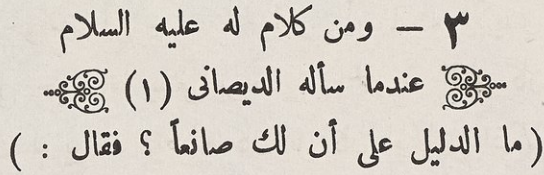 ٣ – ومن كلام له عليه السلام
عندما سأله الديصانى (١)
( ما الدليل على أن لك صانعاً ؟ فقال : )